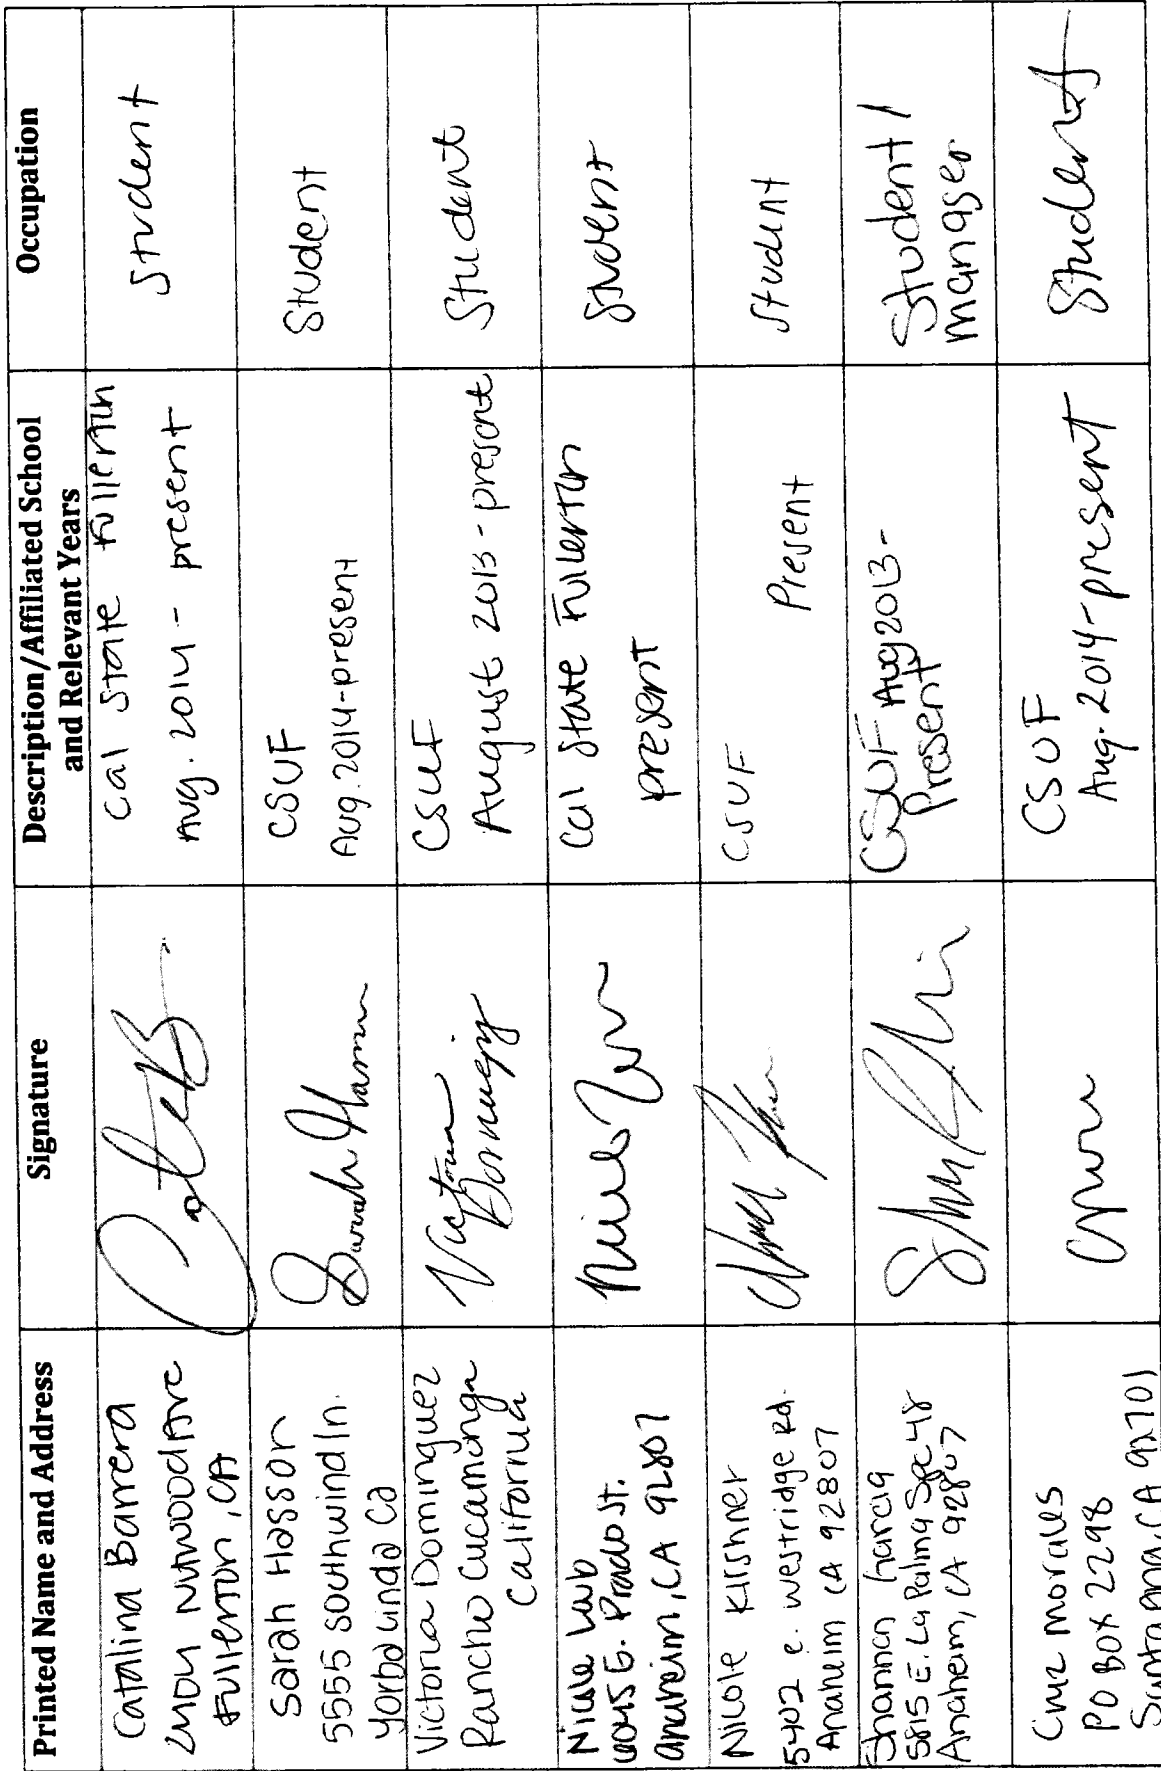 Printed Name and Address
Signature
Description/Affiliated School
and Relevant Years
Occupation
Catalina Barrera
Nutwood Ave
Fullerton, CA
Cal State Fullerton
Aug. 2014 - present
Student
Sarah Hasson
5555 Southwind ln.
Yorba Linda Ca
CSUF
Aug. 2014-present
Student
Victoria Dominguez
Rancho Cucamonga
California
Victoria
CSUF
August 2013 - present
Student
Nicole
St.
Anaheim, CA 92807
Cal State Fullerton
present
Student
Nicole Kirshner
5402 e. Westridge Rd.
Anaheim CA 92807
CSUF
Present
Student
Shannon Garcia
5815 E. La Palma Spc 48
Anaheim, CA 92807
CSUF Aug 2013-
Present
Student /
manager
Cruz Morales
PO BOX 2298
Santa Ana, CA 92701
CSUF
Aug. 2014-present
Student